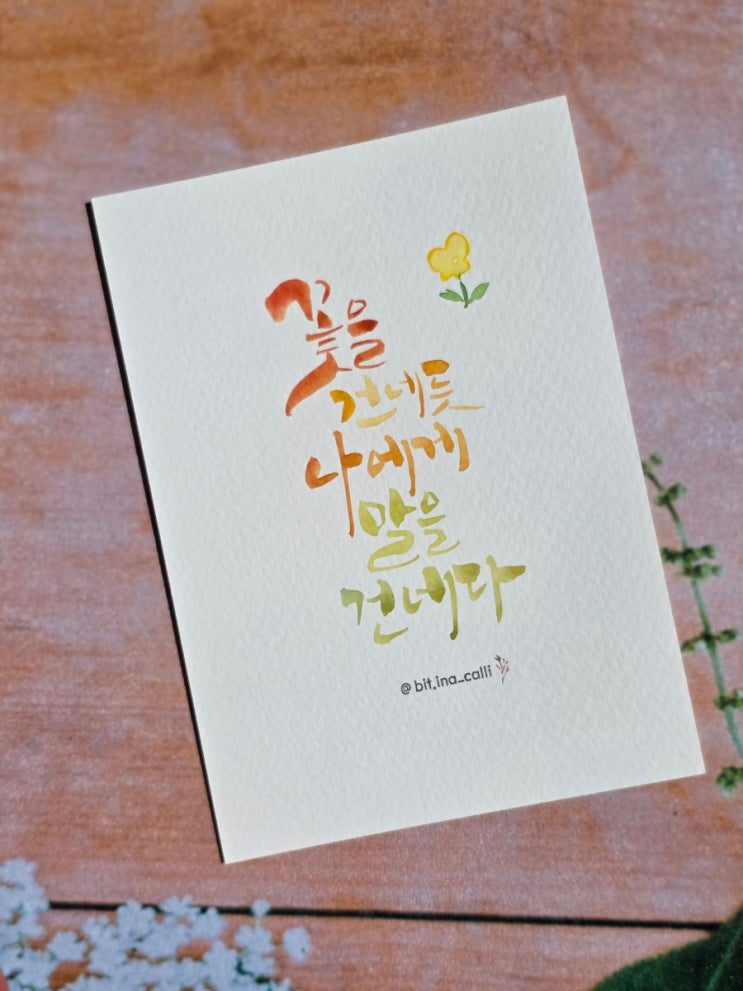 꽃을
건네듯
나에게
말을
건네다
@bit.ina_calli